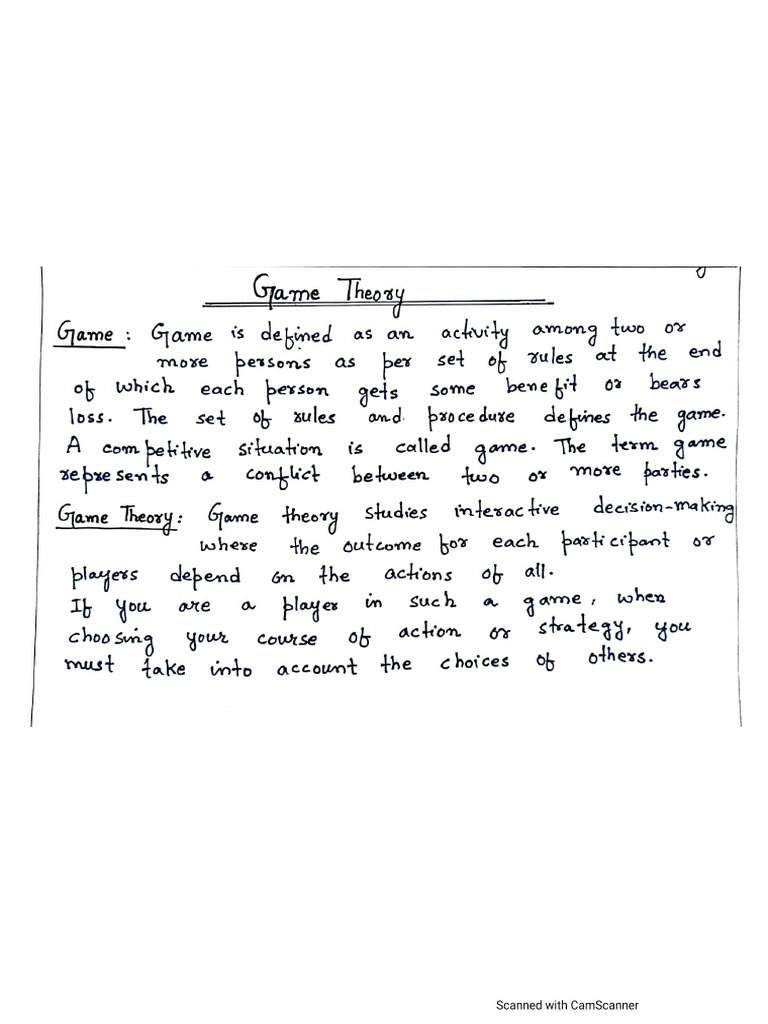 Game Theory
Game : Game is defined as an activity among two or
more persons as per set of rules at the end
of which each person gets some benefit or bears
loss. The set of rules and procedure defines the game.
A competitive situation is called game. The term game
represents a conflict between two or more parties.
Game Theory : Game theory studies interactive decision-making
where the outcome for each participant or
players depend on the actions of all.
If you are a player in such a game, when
choosing your course of action or strategy, you
must take into account the choices of others.
Scanned with CamScanner